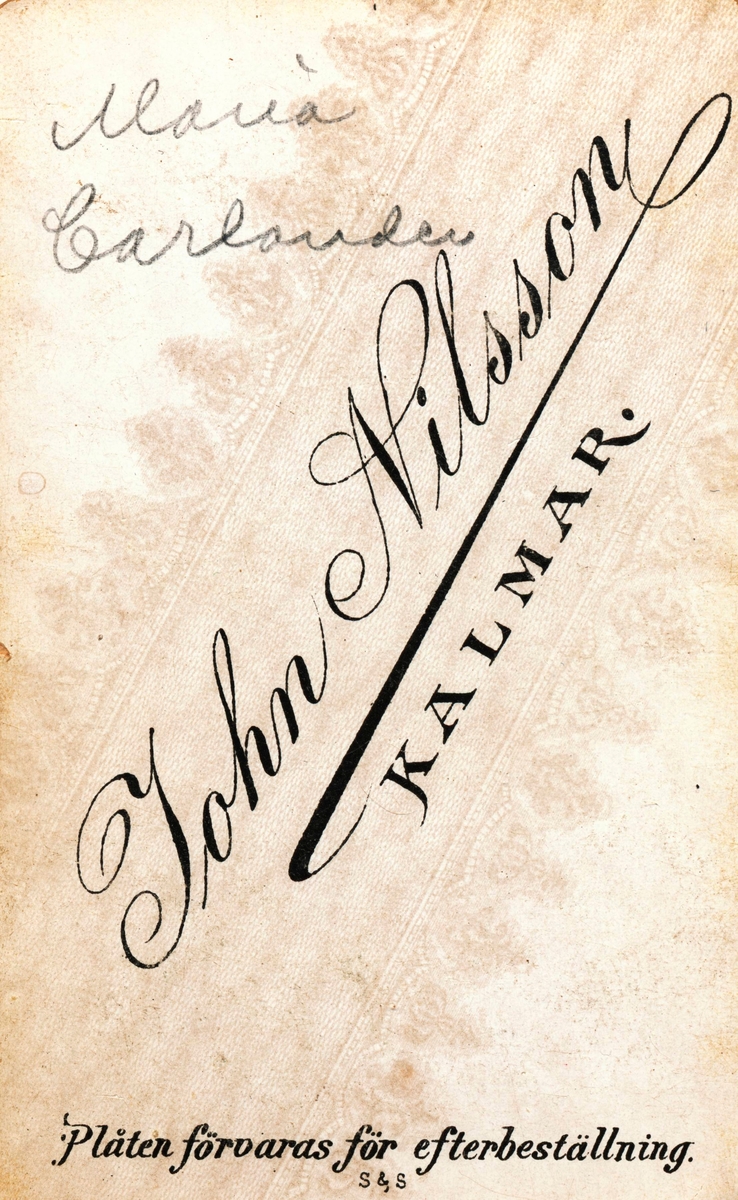 Maria
Carlander
John Nilsson
KALMAR.
Plåten förvaras för efterbeställning.
S & S